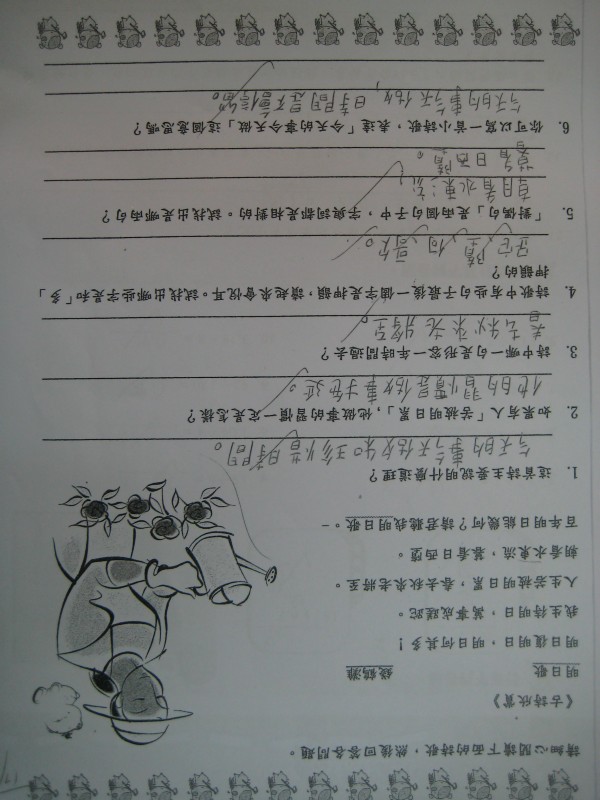 請細心閱讀下面的詩歌,然後回答各問題。
《古詩欣賞》
明日歌 錢鶴灘
明日復明日,明日何其多!
我生待明日,萬事成蹉跎。
人生若被明日累,春去秋來老將至。
朝看水東流,暮看日西墮。
百年明日能幾何?請君聽我明日歌。
1. 這首詩主要說明什麼道理?
今天的事今天做和珍惜時間。
2. 如果有人「若被明日累」,他做事的習慣一定是怎樣?
他的習慣是做事拖延。
3. 詩中哪一句是形容一年時間過去?
春去秋來老將至。
4. 詩歌中有些句子最後一個字是押韻,讀起來會悅耳。試找出哪些字是和「多」
押韻的?
跎 墮 何 歌。
5. 「對偶句」是兩個句子中,字與詞都是相對的。試找出是哪兩句?
朝看水東流
暮看日西墮
6. 你可以寫一首小詩歌,表達「今天的事今天做」這個意思嗎?
今天的事今天做,時間是不會